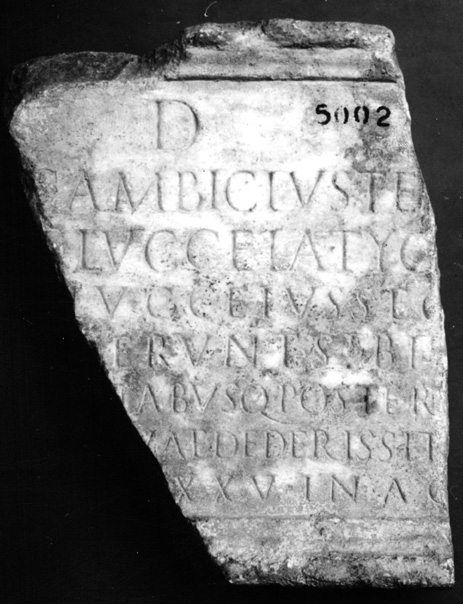 D 5002
AMBICIVSTE
LVCCEIATYC
VCCEIVSST
ERVNTSIBI
ABVSQPOSTER
AEDEDERISSIT
XXVINAG